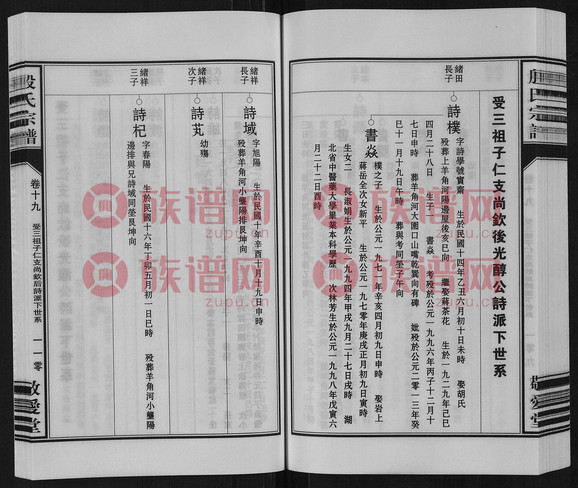 殷氏宗譜
受三祖子仁支尚欽後光醇公詩派下世系
緒田
長子
詩樸
字詩學號實齋 生於民國十四年乙丑六月初十日未時 娶胡氏
歿葬上羊角河陽邊屋後亥巳向 繼娶蔣茶花 生於一九二九年己巳
四月二十八日 生子一 書焱 考歿於公元一九九六年丙子十二月十
七日申時 葬羊角河大圍口山嘴乾巽向有碑 妣歿於公元二零一三年癸
巳十一月十九日午時 葬與考同塋子午向
書焱
樸之子 生於公元一九七一年辛亥四月初九日申時 娶岩上
蔣岳全次女新平 生於公元一九七零年庚戌正月初九日寅時
生女二 長淑娟生於公元一九九四年甲戌九月二十七日戌時 湖
北省中醫藥大學畢業本科學歷 次林芳生於公元一九九八年戊寅六
月二十二日酉時
緒祥
長子
詩域
字旭陽 生於民國十年辛酉十月十九日申時
歿葬羊角河小壟陽排艮坤向
緒祥
次子
詩芄
幼殤
緒祥
三子
詩杞
字春陽 生於民國十六年丁卯五月初一日巳時 歿葬羊角河小壟陽
邊排與兄詩域同塋艮坤向
殷氏宗譜
卷十九
受三祖子仁支尚欽后詩派下世系
一一零
敬愛堂
敬愛堂
族谱网
zupu.cn
族谱网
zupu.cn
族谱网
zupu.cn
族谱网
zupu.cn